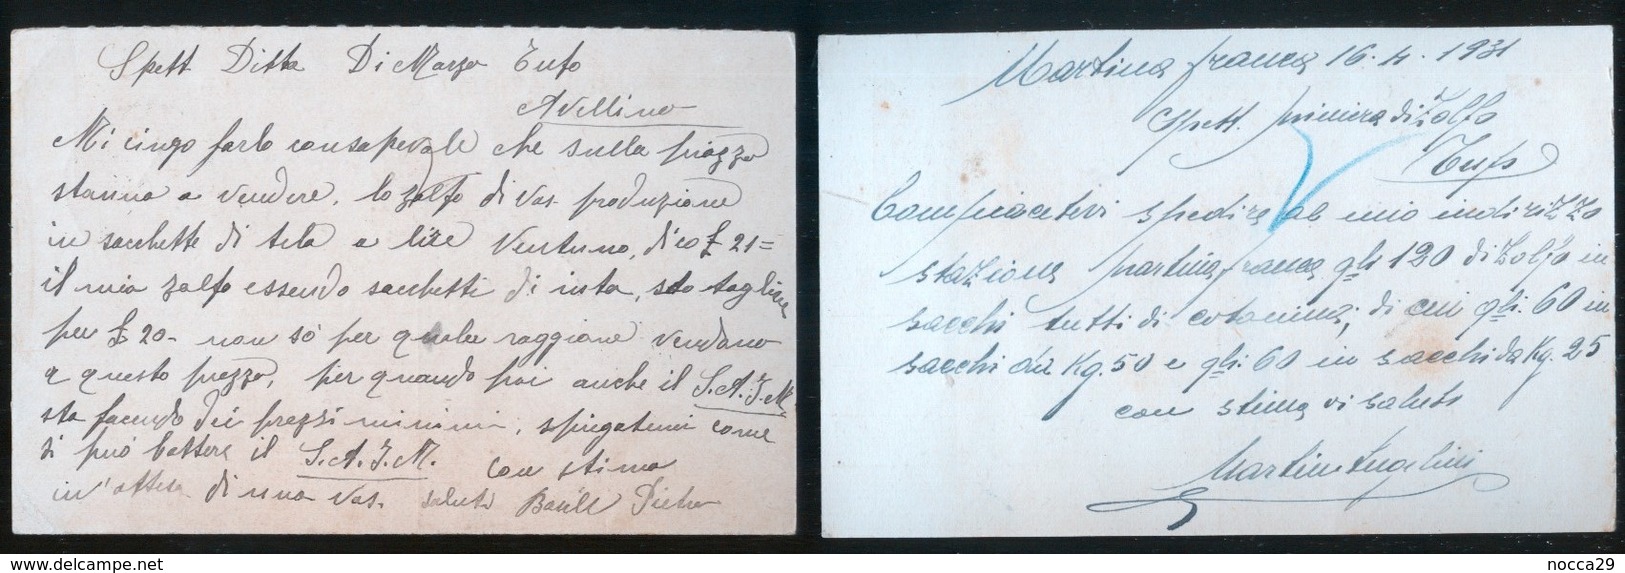 Spett Ditta Di Marzo Tufo
Avellino
Mi cingo farlo consapevole che sulla piazza
stanno a vendere, lo zolfo di vos. produzione
in sacchette di tela a lire ventuno, dico £ 21=
il mio zolfo essendo sacchetti di iuta, sto togliere
per £ 20- non so per quale raggione vendono
a questo prezzo, per quando poi anche il S.A.I.M.
sta facendo dei prezzi minimi, spiegatemi come
si può battere il S.A.I.M. con stima
in'attesa di una vos. saluti Basile Pietro
Martina franca 16.4.1931
Spett. miniera di Zolfo
Tufo
Compiacetevi spedire al mio indirizzo
stazione Martina franca qli 120 di Zolfo in
sacchi tutti di cotonina, di cui qli. 60 in
sacchi da Kg. 50 e qli. 60 in sacchi da Kg. 25
con stima vi saluto
Martino
delcampe.net
nocca29